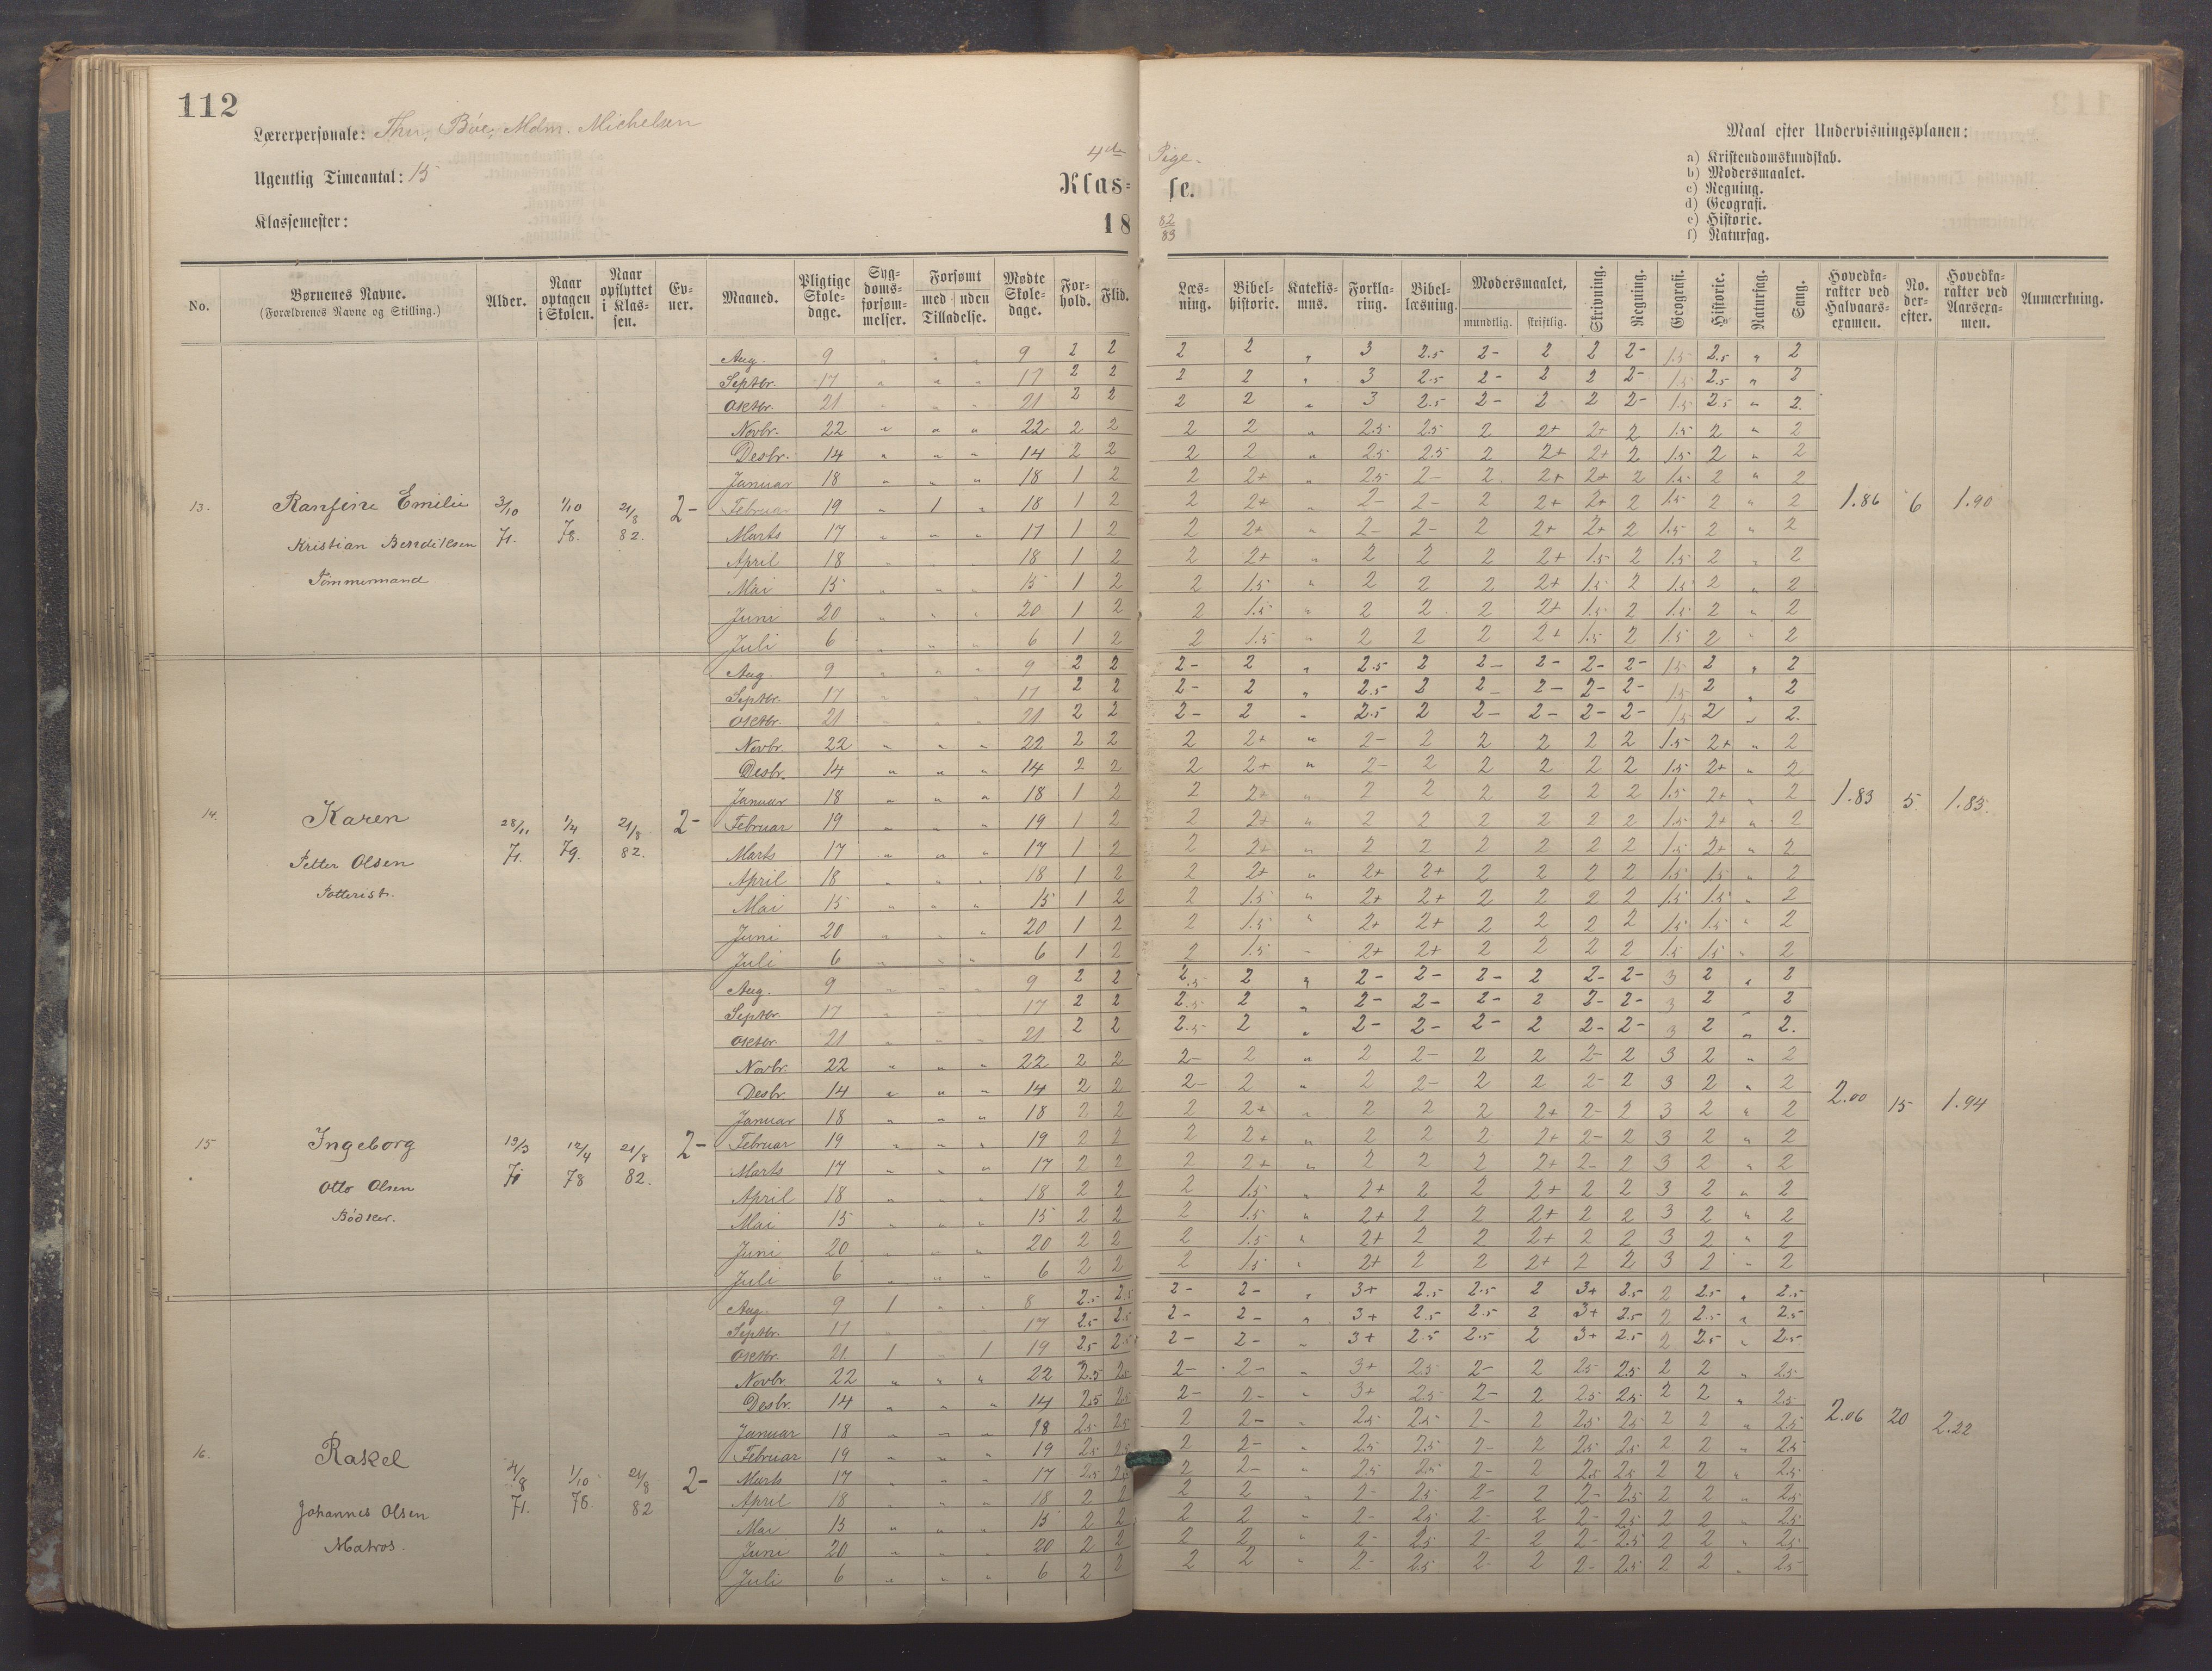 112
Lærerpersonale: Thn, Böe, Mdm. Michelsen
Ugentlig Timeantal: 15
Klassemester:
4de Pige-
Klas- se.
18 82/83
Maal efter Undervisningsplanen:
a) Kristendomskundskab.
b) Modersmaalet.
c) Regning.
d) Geografi.
e) Historie.
f) Naturfag.
No. | Børnenes Navne. (Forældrenes Navne og Stilling.) | Alder. | Naar optagen i Skolen. | Naar opflyttet i Klassen. | Evner. | Maaned. | Pligtige Skoledage. | Sygdomsforsømmelser. | Forsømt med uden Tilladelse. | Mødte Skoledage. | Forhold. | Flid. | Læsning. | Bibelhistorie. | Katekismus. | Forklaring. | Bibellæsning. | Modersmaalet, mundtlig. skriftlig. | Skrivning. | Regning. | Geografi. | Historie. | Naturfag. | Sang. | Hovedkarakter ved Halvaarsexamen. | No. derefter. | Hovedkarakter ved Aarsexamen. | Anmærkning.
13. Ranfine Emilie 3/10 71. 1/10 78. 21/8 82. 2-
Kristian Bendiksen
Tømmermand
Aug. 9 " " " 9 2 2 2 2 " 3 2.5 2- 2 2 2- 1.5 2.5 " 2
Septbr. 17 " " " 17 2 2 2 2 " 3 2.5 2- 2 2 2- 1.5 2.5 " 2
Oktbr. 21 " " " 21 2 2 2 2 " 3 2.5 2- 2 2 2- 1.5 2.5 " 2.
Novbr. 22 " " " 22 2 2 2 2 " 2.5 2.5 2 2+ 2+ 2 1.5 2 " 2
Desbr. 14 " " " 14 2 2 2 2 " 2.5 2.5 2 2+ 2+ 2 1.5 2 " 2
Januar 18 " " " 18 1 2 2 2+ " 2.5 2- 2 2+ 2+ 2 1.5 2 " 2
Februar 19 " 1 " 18 1 2 2 2+ " 2- 2- 2 2+ 2+ 2 1.5 2 " 2
Marts 17 " " " 17 1 2 2 2+ " 2- 2- 2 2+ 2+ 2 1.5 2 " 2
April 18 " " " 18 1 2 2 2+ " 2 2 2 2+ 1.5 2 1.5 2 " 2
Mai 15 " " " 15 1 2 2 1.5 " 2 2 2 2+ 1.5 2 1.5 2 " 2
Juni 20 " " " 20 1 2 2 1.5 " 2 2 2 2+ 1.5 2 1.5 2 " 2
Juli 6 " " " 6 1 2 2 1.5 " 2 2 2 2+ 1.5 2 1.5 2 " 2
1.86 6 1.90
14. Karen 28/11 71. 1/4 79. 21/8 82. 2-
Petter Olsen
Potterist.
Aug. 9 " " " 9 2 2 2- 2 " 2.5 2 2- 2- 2- 2- 1.5 2 " 2
Septbr. 17 " " " 17 2 2 2- 2 " 2.5 2 2- 2- 2- 2- 1.5 2 " 2
Oktbr. 21 " " " 21 2 2 2- 2 " 2.5 2 2- 2- 2- 2- 1.5 2 " 2.
Novbr. 22 " " " 22 2 2 2 2+ " 2- 2 2 2 2 2 1.5 2+ " 2
Desbr. 14 " " " 14 2 2 2 2+ " 2- 2 2 2 2 2 1.5 2+ " 2
Januar 18 " " " 18 1 2 2 2+ " 2 2 2 2 2 2 1.5 2+ " 2
Februar 19 " " " 19 1 2 2 2+ " 2 2 2 2 2 2 1.5 2+ " 2
Marts 17 " " " 17 1 2 2 2+ " 2 2 2 2 2 2 1.5 2+ " 2
April 18 " " " 18 1 2 2 2+ " 2+ 2+ 2 2 2 2 1.5 1.5 " 2
Mai 15 " " " 15 1 2 2 1.5 " 2+ 2+ 2 2 2 2 1.5 1.5 " 2
Juni 20 " " " 20 1 2 2 1.5 " 2+ 2+ 2 2 2 2 1.5 1.5 " 2
Juli 6 " " " 6 1 2 2 1.5 " 2+ 2+ 2 2 2 2 1.5 1.5 " 2
1.83 5 1.83.
15 Ingeborg 19/3 71 12/4 78 21/8 82. 2-
Otto Olsen
Bödker.
Aug. 9 " " " 9 2 2 2.5 2 " 2- 2- 2- 2 2- 2- 3 2 " 2
Septbr. 17 " " " 17 2 2 2.5 2 " 2- 2- 2- 2 2- 2- 3 2 2
Oktbr. 21 " " " 21 2 2 2.5 2 " 2- 2- 2- 2 2- 2- 3 2 " 2.
Novbr. 22 " " " 22 2 2 2- 2 " 2 2- 2 2 2- 2 3 2 " 2
Desbr. 14 " " " 14 2 2 2- 2 " 2 2- 2 2 2- 2 3 2 " 2
Januar 18 " " " 18 2 2 2 2+ " 2 2 2 2+ 2- 2 3 2 " 2
Februar 19 " " " 19 2 2 2 2+ " 2 2 2 2+ 2- 2 3 2 " 2
Marts 17 " " " 17 2 2 2 2+ " 2 2 2 2+ 2- 2 3 2 " 2
April 18 " " " 18 2 2 2 1.5 " 2+ 2 2 2+ 2 2 3 2 " 2
Mai 15 " " " 15 2 2 2 1.5 " 2+ 2 2 2+ 2 2 3 2 " 2
Juni 20 " " " 20 2 2 2 1.5 " 2+ 2 2 2+ 2 2 3 2 " 2
Juli 6 " " " 6 2 2 2 1.5 " 2+ 2 2 2+ 2 2 3 2 " 2
2.00 15 1.94
16. Rakel 4/8 71. 1/10 78. 21/8 82 2-
Johannes Olsen
Matros.
Aug. 9 1 " " 8 2.5 2.5 2- 2- " 3+ 2.5 2.5 2 3+ 2.5 2 2.5 " 2.5
Septbr. 17 " " " 17 2.5 2.5 2- 2- " 3+ 2.5 2.5 2 3+ 2.5 2 2.5 " 2.5
Oktbr. 21 1 " 1 19 2.5 2.5 2- 2- " 3+ 2.5 2.5 2 3+ 2.5 2 2.5 " 2.5
Novbr. 22 " " " 22 2.5 2.5 2- 2- " 3+ 2.5 2- 2 2.5 2.5 2 2 " 2.5
Desbr. 14 " " " 14 2.5 2.5 2- 2- " 3+ 2.5 2- 2 2.5 2.5 2 2 " 2.5
Januar 18 " " " 18 2.5 2.5 2 2- " 2.5 2.5 2- 2 2.5 2.5 2 2 " 2.5
Februar 19 " " " 19 2.5 2.5 2 2- " 2.5 2.5 2- 2 2.5 2.5 2 2 " 2.5
Marts 17 " " " 17 2.5 2.5 2 2- " 2.5 2.5 2- 2 2.5 2.5 2 2 " 2.5
April 18 " " " 18 2 2 2 2 " 2- 2.5 2- 2 2- 2.5 2 2 " 2.5
Mai 15 " " " 15 2 2 2 2 " 2- 2.5 2- 2 2- 2.5 2 2 " 2.5
Juni 20 " " " 20 2 2 2 2 " 2- 2.5 2- 2 2- 2.5 2 2 " 2.5
Juli 6 " " " 6 2 2 2 2 " 2- 2.5 2- 2 2- 2.5 2 2 " 2.5
2.06 20 2.22